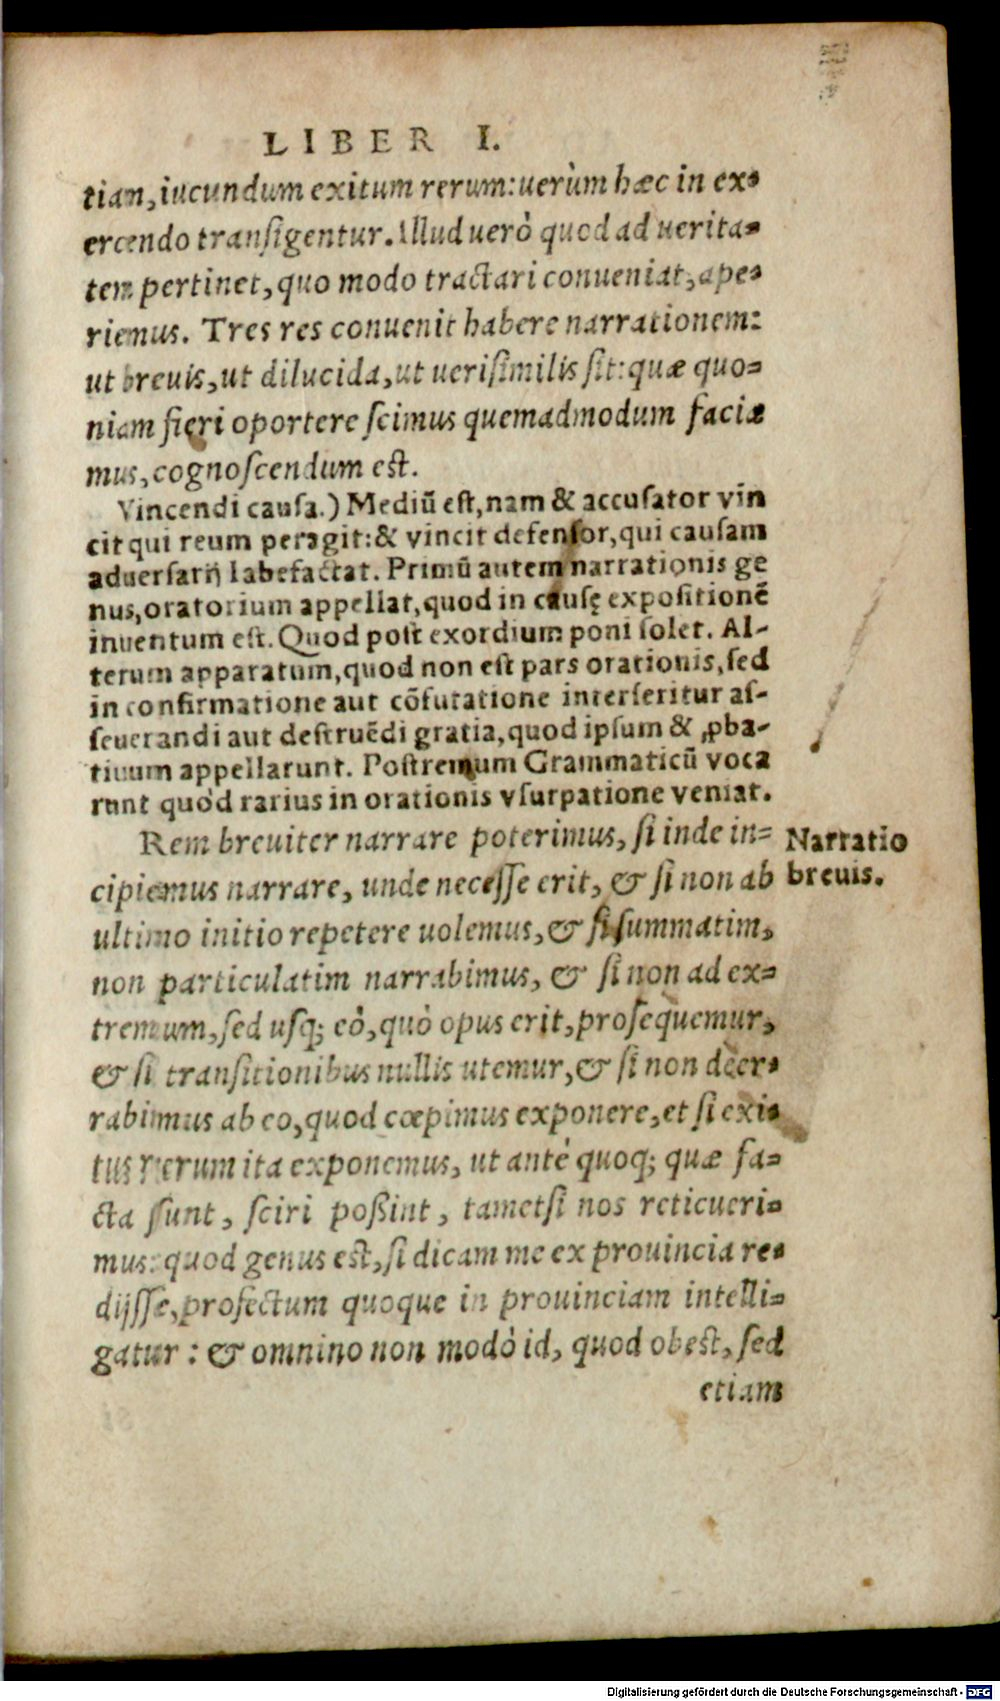 LIBER I.
tiam, iucundum exitum rerum: uerùm hæc in ex-
ercendo transigentur. Illud uerò quod ad uerita-
tem pertinet, quo modo tractari conueniat, ape-
riemus. Tres res conuenit habere narrationem:
ut breuis, ut dilucida, ut uerisimilis sit: quæ quo-
niam fieri oportere scimus quemadmodum faciæ
mus, cognoscendum est.
Vincendi causa.) Mediũ est, nam & accusator vin
cit qui reum peragit: & vincit defensor, qui causam
aduersarij labefactat. Primũ autem narrationis ge
nus, oratorium appellat, quod in causę expositionẽ
inuentum est. Quod post exordium poni solet. Al-
terum apparatum, quod non est pars orationis, sed
in confirmatione aut cõfutatione interseritur as-
seuerandi aut destruẽdi gratia, quod ipsum & ꝓba-
tiuum appellarunt. Postremum Grammaticũ voca
runt quòd rarius in orationis vsurpatione veniat.
Rem breuiter narrare poterimus, si inde in-
cipiemus narrare, unde necesse erit, & si non ab
ultimo initio repetere uolemus, & si summatim,
non particulatim narrabimus, & si non ad ex-
tremum, sed usq; eò, quò opus erit, prosequemur,
& si transitionibus nullis utemur, & si non deer-
rabimus ab eo, quod cœpimus exponere, et si exi-
tus rerum ita exponemus, ut antè quoq; quæ fa-
cta sunt, sciri poßint, tametsi nos reticueri-
mus: quod genus est, si dicam me ex prouincia re-
dijsse, profectum quoque in prouinciam intelli-
gatur: & omnino non modò id, quod obest, sed
etiam
Narratio
breuis.
Digitalisierung gefördert durch die Deutsche Forschungsgemeinschaft - DFG